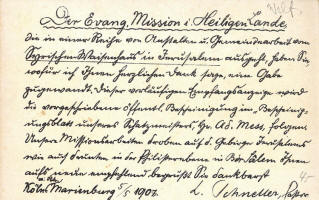 Der Evang. Mission i. Heiligen Lande,
die in einer Reihe von Anstalten u. Gemeindearbeit vom
Syrischen Waisenhaus in Jerusalem ausgeht, haben Sie,
wofür ich Ihnen herzlichen Dank sage, eine Gabe
zugewandt. Dieser vorläufigen Empfangsanzeige wird
die vorgeschriebene öffentl. Bescheinigung im "Bescheinig-
ungsblatt" unseres Schatzmeisters, Hr. Ad. Mess, folgen.
Unsere Missionsarbeiten droben auf d. Gebirge Jerusalems
wie auch drunten in der Philisterebene in Bir Salem Ihnen
aufs neue empfehlend, begrüßt Sie dankbarst
Köln Marienburg 5/5 1907. L. Schneller, Pastor